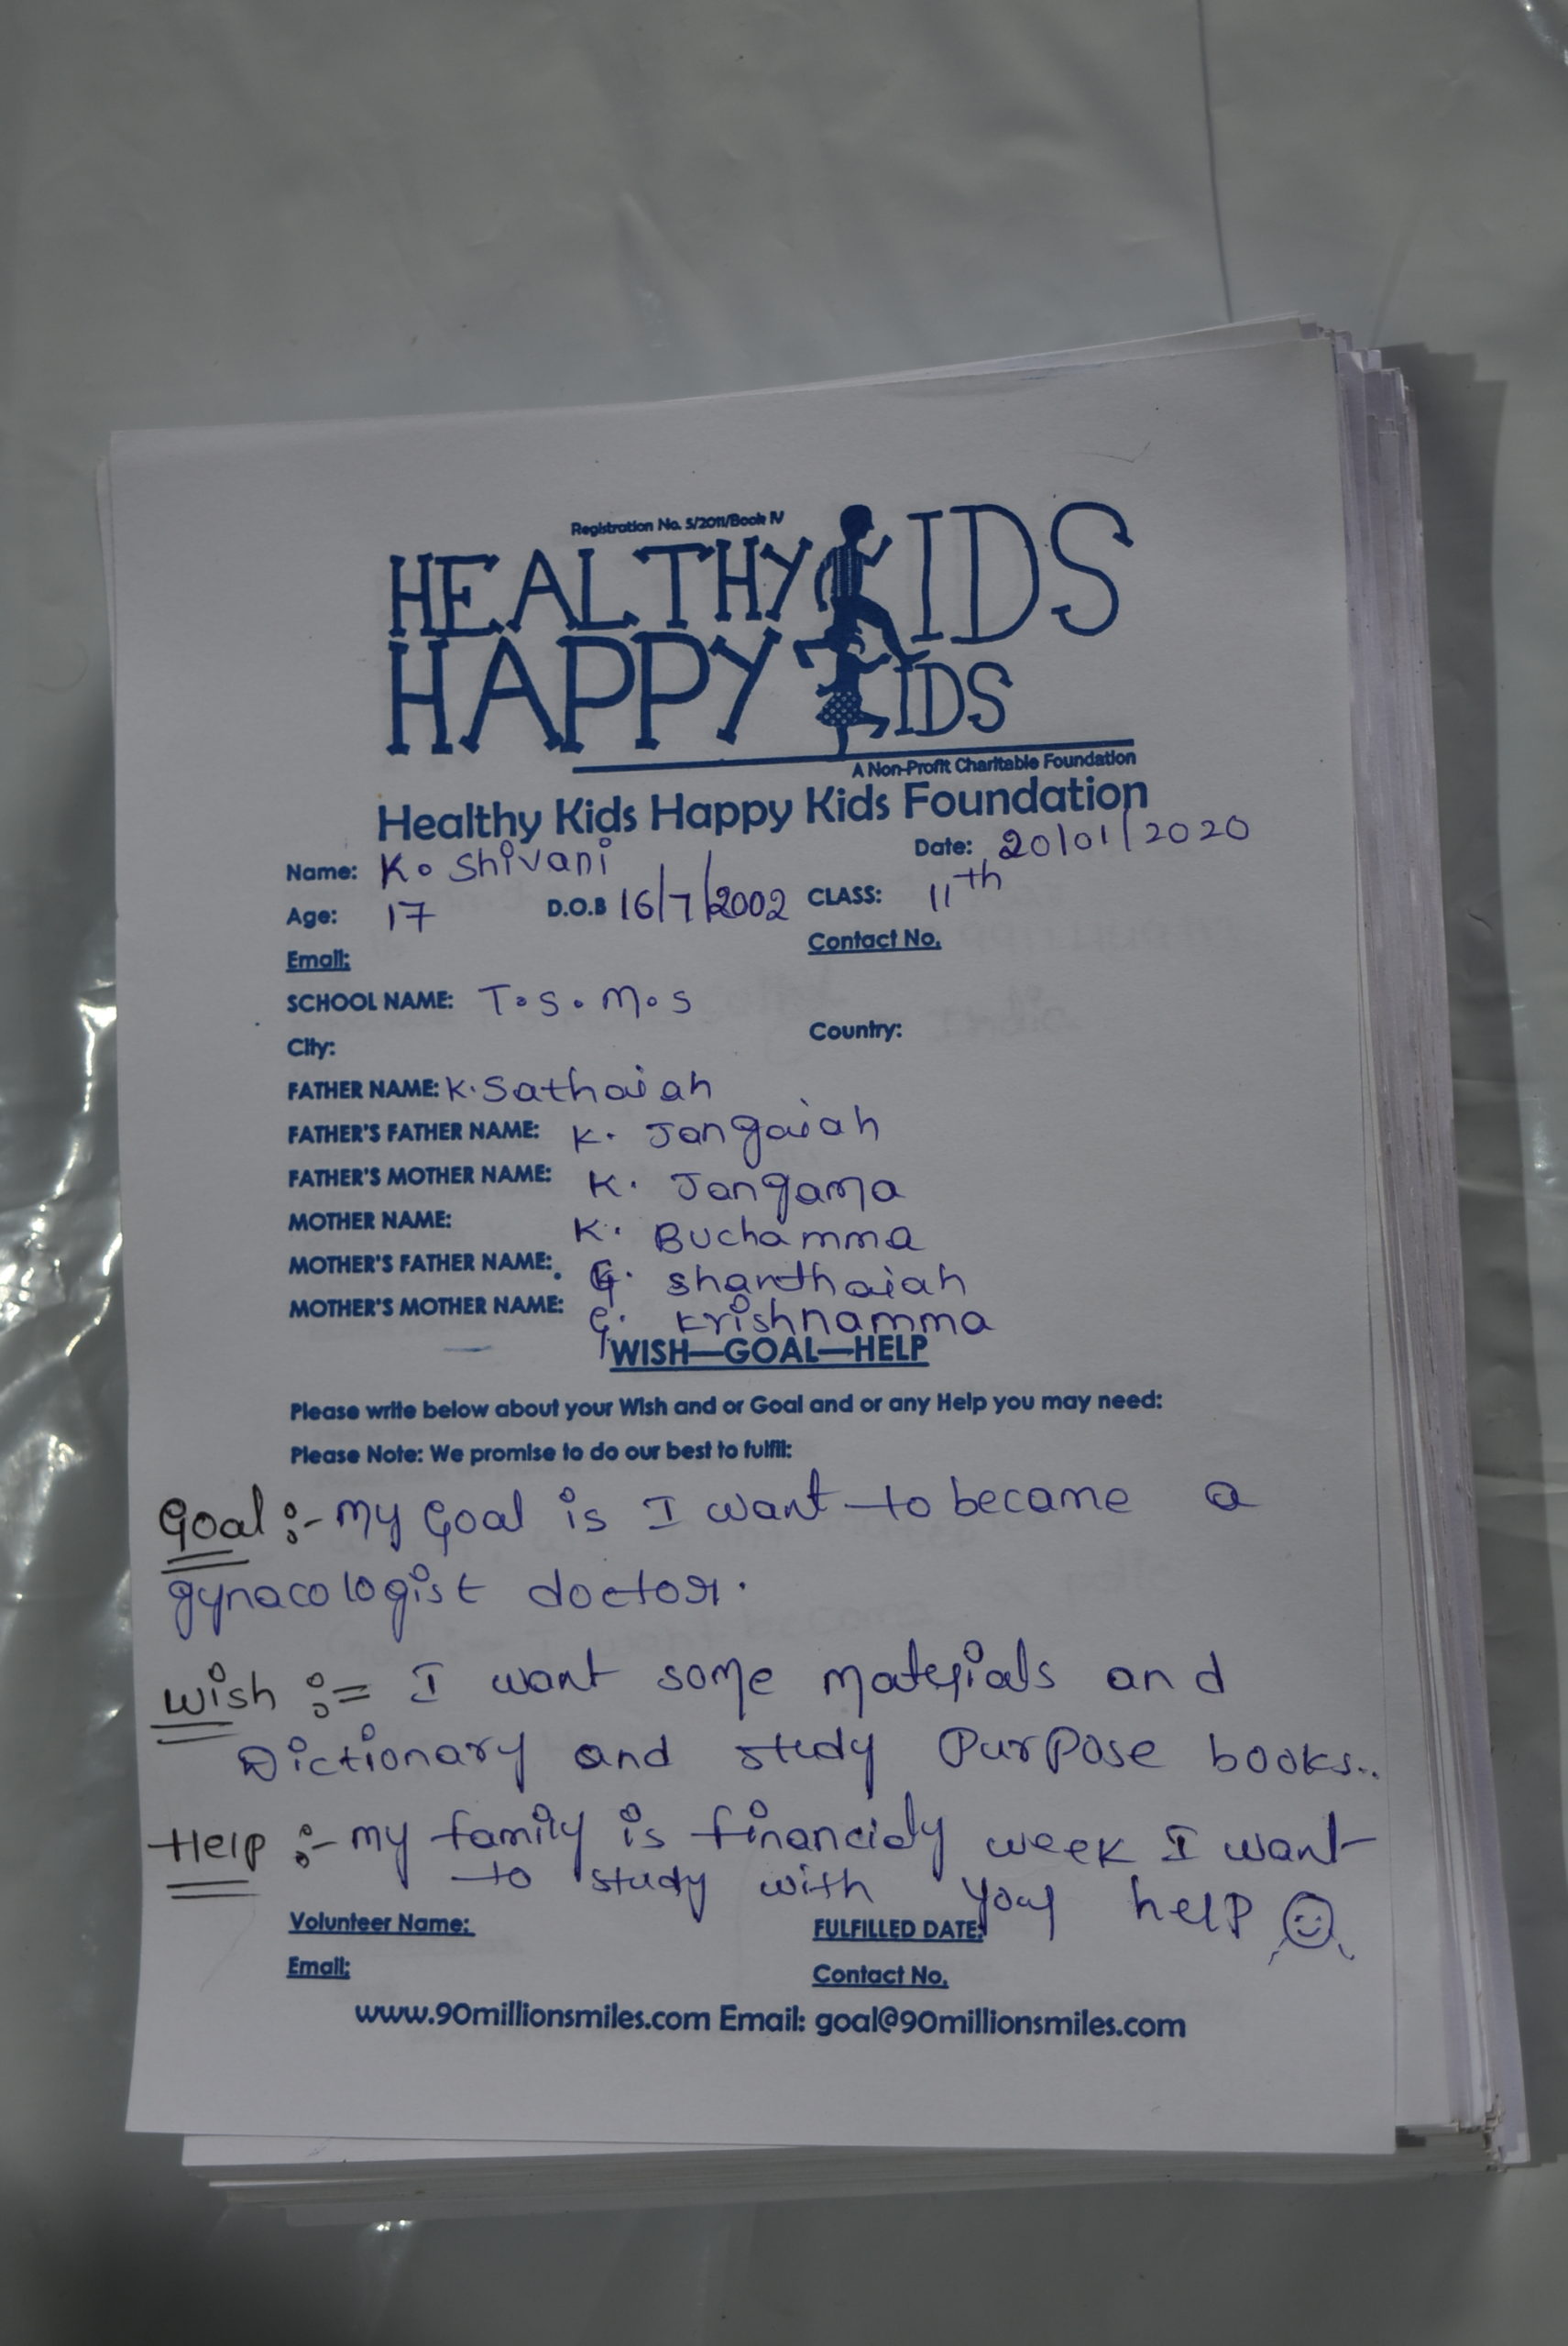 Registration No. 5/2011/Book IV
HEALTHY KIDS
HAPPY KIDS
A Non-Profit Charitable Foundation
Healthy Kids Happy Kids Foundation
Name: K. Shivani Date: 20/01/2020
Age: 17 D.O.B 16/7/2002 CLASS: 11th
Email: Contact No.
SCHOOL NAME: T.S.M.S
City: Country:
FATHER NAME: K. Sathaiah
FATHER'S FATHER NAME: K. Jangaiah
FATHER'S MOTHER NAME: K. Jangama
MOTHER NAME: K. Buchamma
MOTHER'S FATHER NAME: G. shanthaiah
MOTHER'S MOTHER NAME: G. krishnamma
WISH—GOAL—HELP
Please write below about your Wish and or Goal and or any Help you may need:
Please Note: We promise to do our best to fulfil:
Goal :- my Goal is I want to became a
gynacologist doctor.
wish := I want some materials and
Dictionary and study Purpose books..
Help :- my family is financialy week I want
to study with your help
Volunteer Name: FULFILLED DATE:
Email: Contact No.
www.90millionsmiles.com Email: goal@90millionsmiles.com